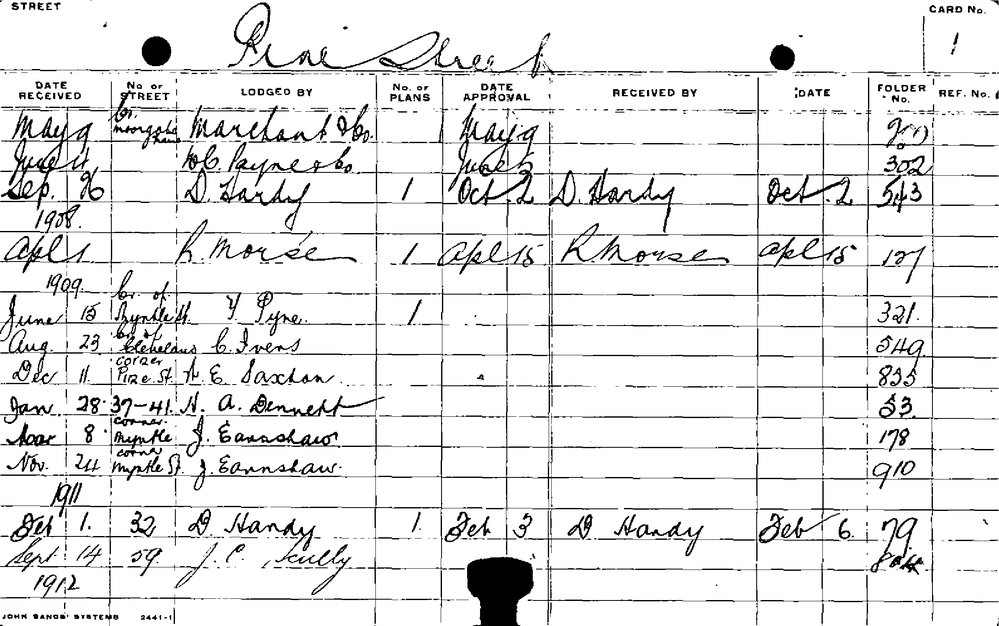 STREET
CARD No.
Pine Street
1
DATE RECEIVED No. OF STREET LODGED BY No. OF PLANS DATE APPROVAL RECEIVED BY DATE FOLDER No. REF. No.
May 9 Cr. Marchant & Co. May 9
June 4 Payne & Co. June 5 302
Sep. 26 D. Hardy 1 Oct. 2 D. Hardy Oct. 2 543
1908.
Apl 1 R. Morse 1 Apl 15 R. Morse Apl 15 127
1909. Cr. of
June 15 Myrtle St. Y Pyne. 1 321.
Cr. of
Aug. 23 Cleveland C. Ivens 549
corner
Dec 11. Pine St. E. Saxton 835
Jan 28. 37-41. H. A. Dennett 53.
corner
Mar 8. Myrtle J. Earnshaw 178
corner
Nov. 24 Myrtle St. J. Earnshaw. 910
1911
Feb 1. 32 D Hardy 1. Feb 3 D Hardy Feb 6. 79
Sept 14 59. J. C. Scully
1912
JOHN SANDS' SYSTEMS 2441-1